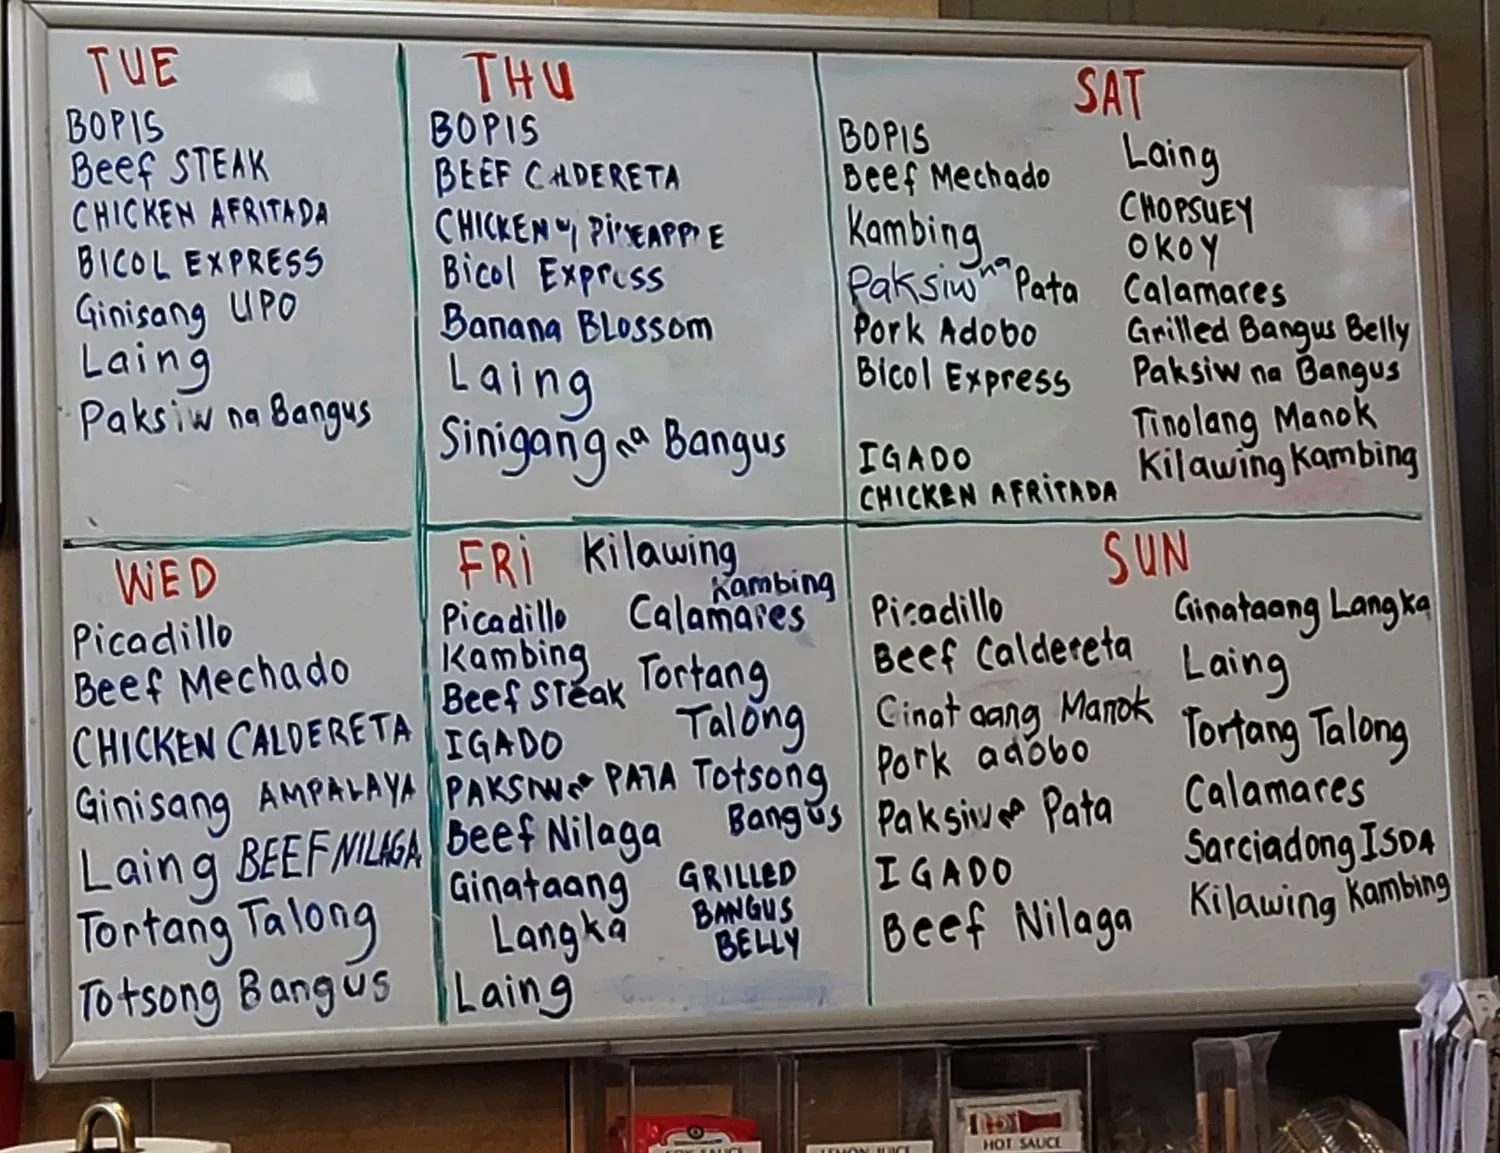 TUE
BOPIS
Beef STEAK
CHICKEN AFRITADA
BICOL EXPRESS
Ginisang UPO
Laing
Paksiw na Bangus
THU
BOPIS
BEEF CALDERETA
CHICKEN w/ PINEAPPLE
Bicol Express
Banana BLossom
Laing
Sinigang na Bangus
SAT
BOPIS
Beef Mechado
Kambing
Paksiw na Pata
Pork Adobo
Bicol Express
IGADO
CHICKEN AFRITADA
Laing
CHOPSUEY
OKOY
Calamares
Grilled Bangus Belly
Paksiw na Bangus
Tinolang Manok
Kilawing Kambing
WED
Picadillo
Beef Mechado
CHICKEN CALDERETA
Ginisang AMPALAYA
Laing BEEF NILAGA
Tortang Talong
Totsong Bangus
FRi
Picadillo
Kambing
Beef STeak
IGADO
PAKSIW na PATA
Beef Nilaga
Ginataang
Langka
Laing
Kilawing
Kambing
Calamares
Tortang
Talong
Totsong
Bangus
GRILLED
BANGUS
BELLY
SUN
Picadillo
Beef Caldereta
Ginataang Manok
Pork adobo
Paksiw na Pata
IGADO
Beef Nilaga
Ginataang Langka
Laing
Tortang Talong
Calamares
Sarciadong ISDA
Kilawing Kambing
SOY SAUCE
LEMON JUICE
HOT SAUCE